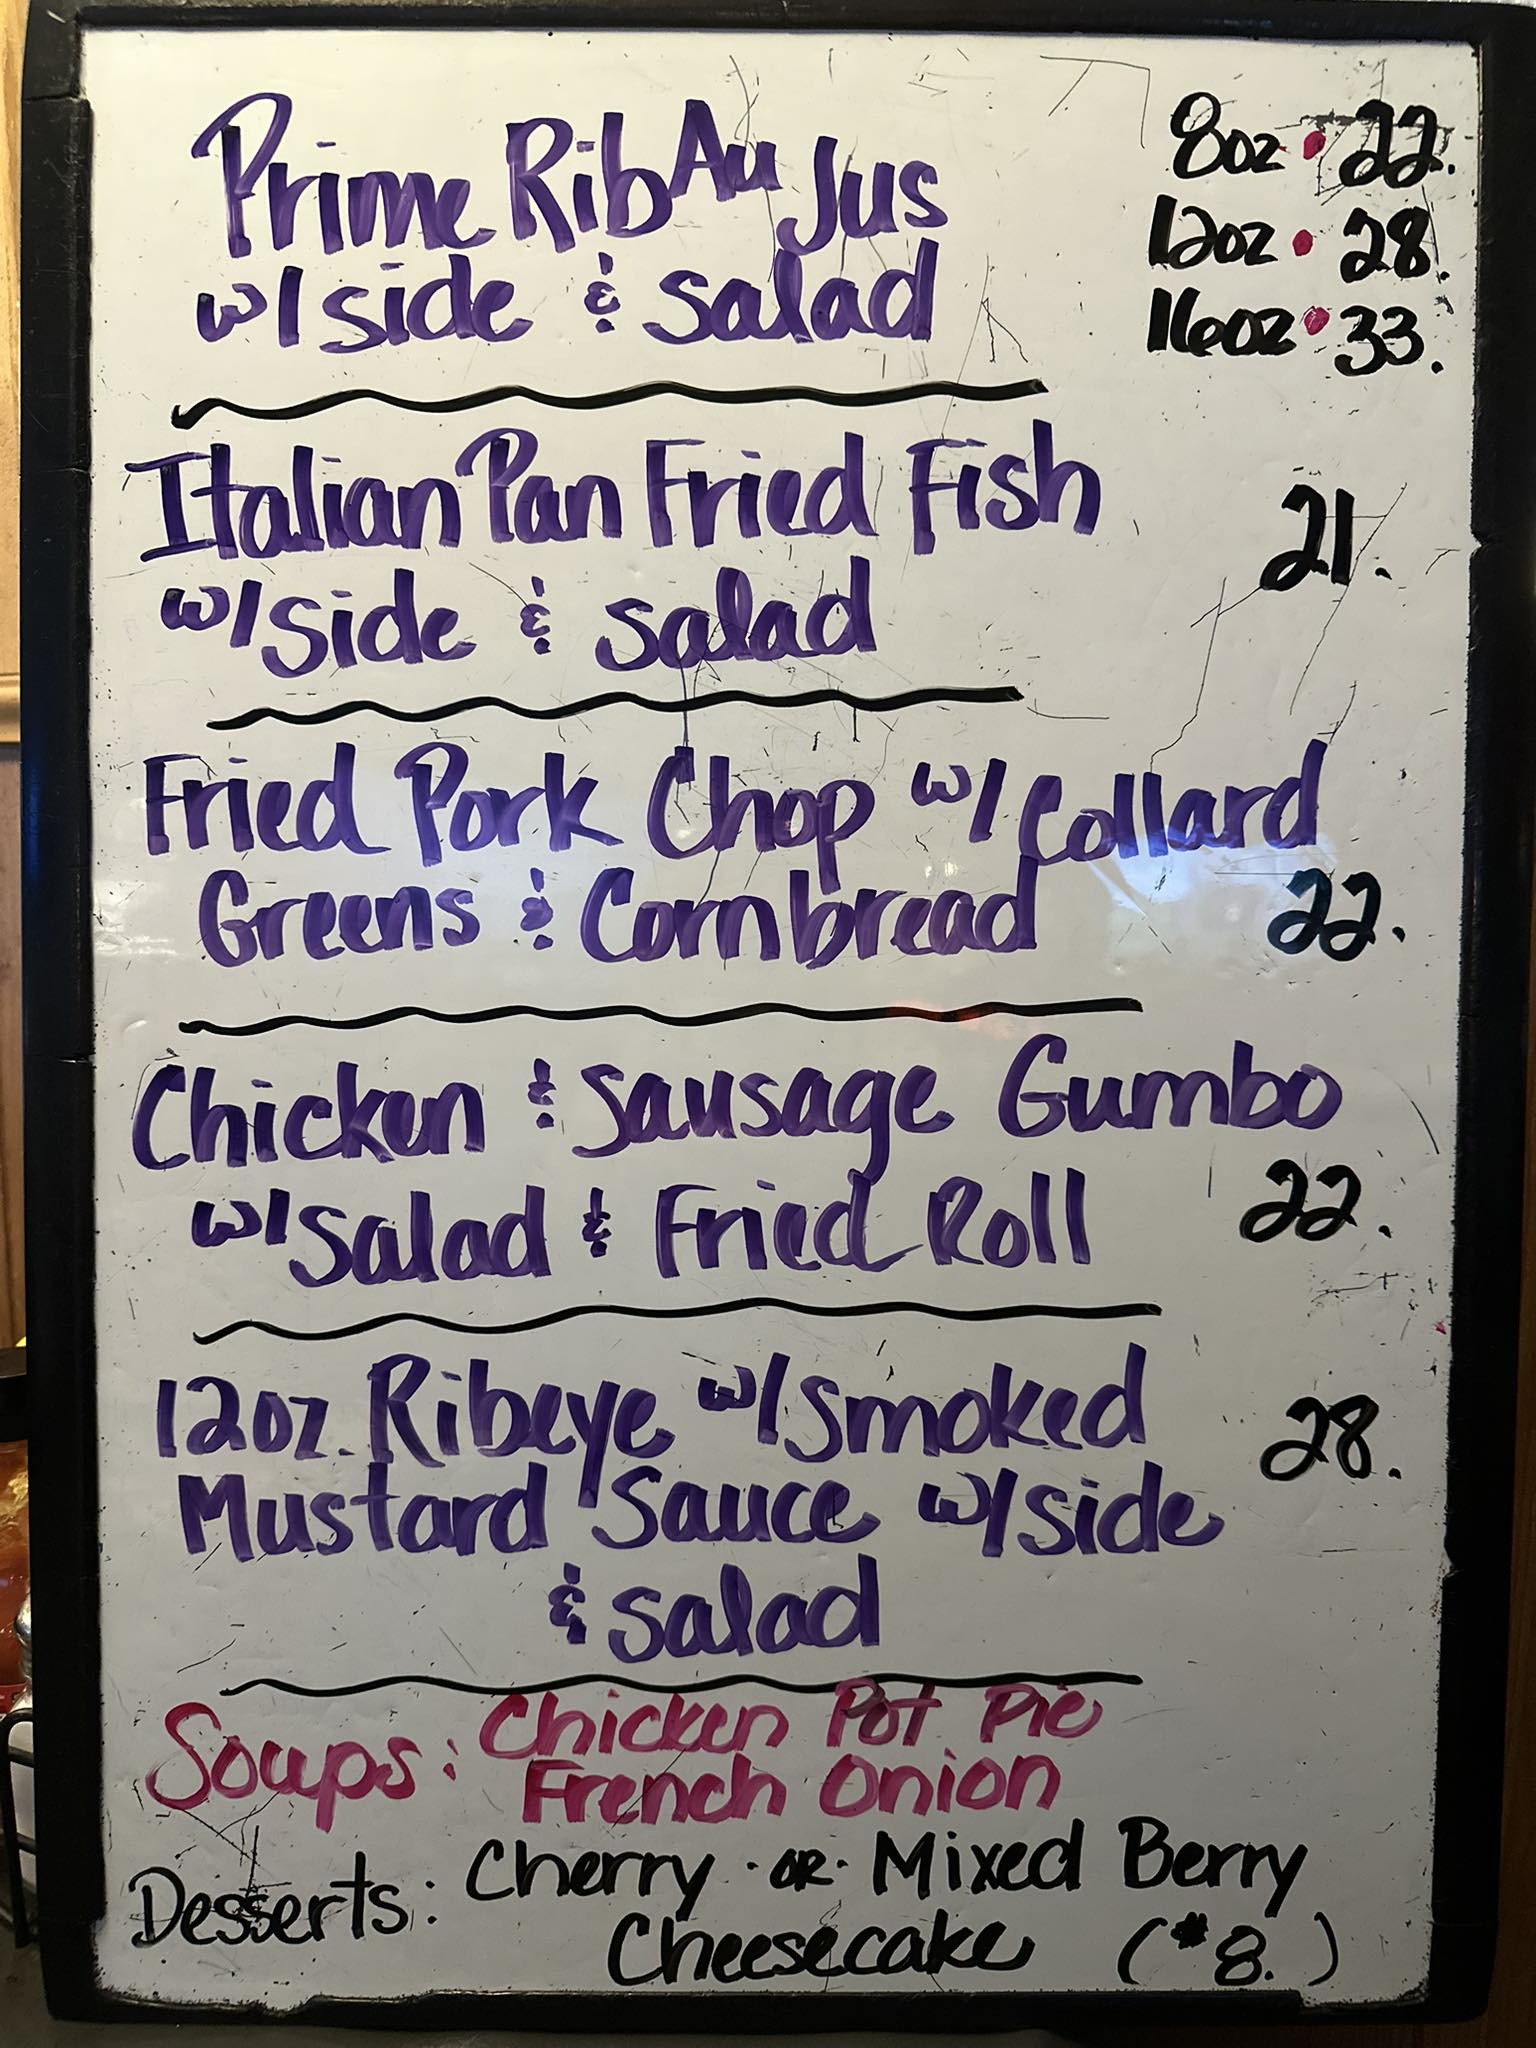 Prime Rib Au Jus
w/ side & salad
8oz • 22.
12oz • 28.
16oz • 33.
Italian Pan Fried Fish
w/ side & salad
21.
Fried Pork Chop w/ Collard
Greens & Cornbread
22.
Chicken & Sausage Gumbo
w/ Salad & Fried Roll
22.
12oz. Ribeye w/ Smoked
Mustard Sauce w/ side
& salad
28.
Soups: Chicken Pot Pie
French Onion
Desserts: Cherry · OR · Mixed Berry
Cheesecake ($8.)